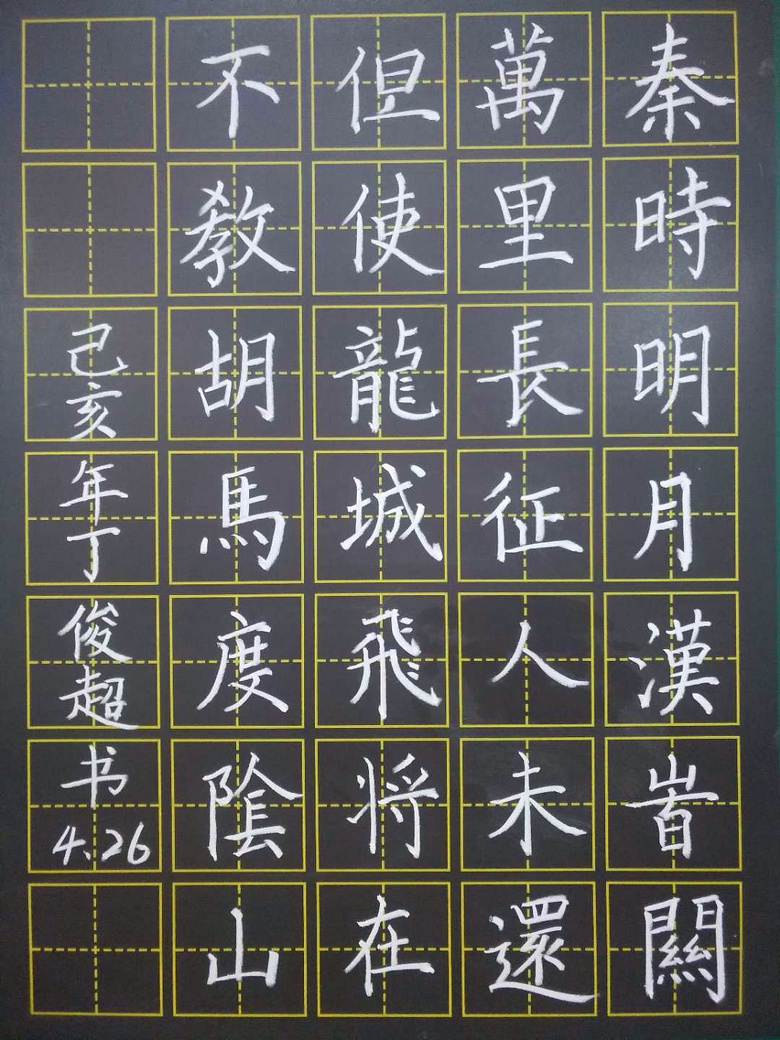 秦時明月漢旹關
萬里長征人未還
但使龍城飛将在
不教胡馬度陰山
己亥年丁俊超书4.26